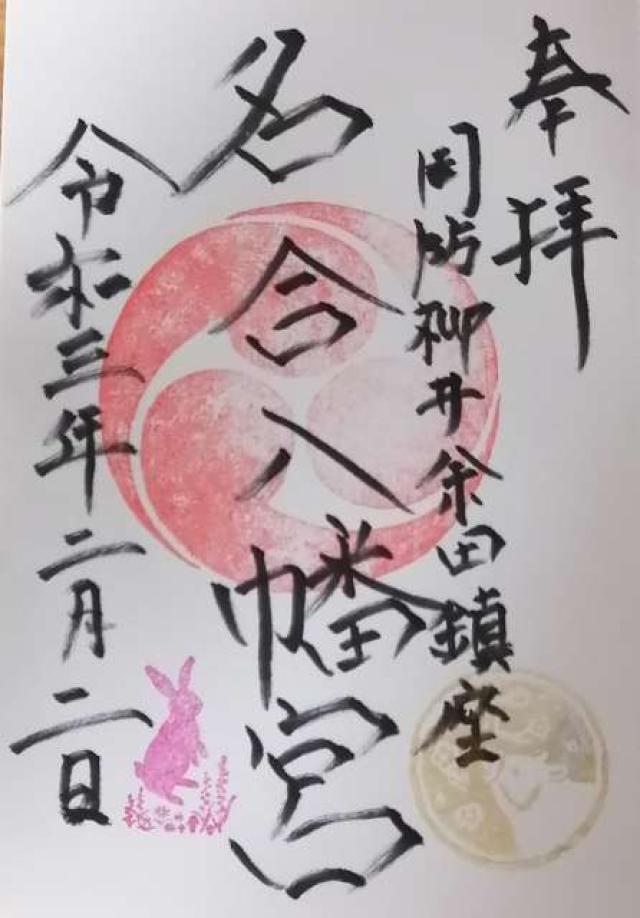 奉拝
周防柳井余田鎮座
名合八幡宮
令和三年二月二日